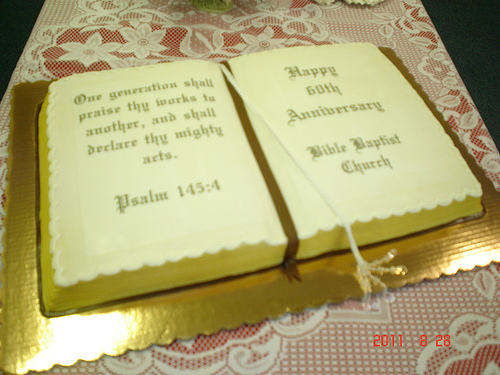 One generation shall
praise thy works to
another, and shall
declare thy mighty
acts.
Psalm 145:4
Happy
60th
Anniversary
Bible Baptist
Church
2011 8 28